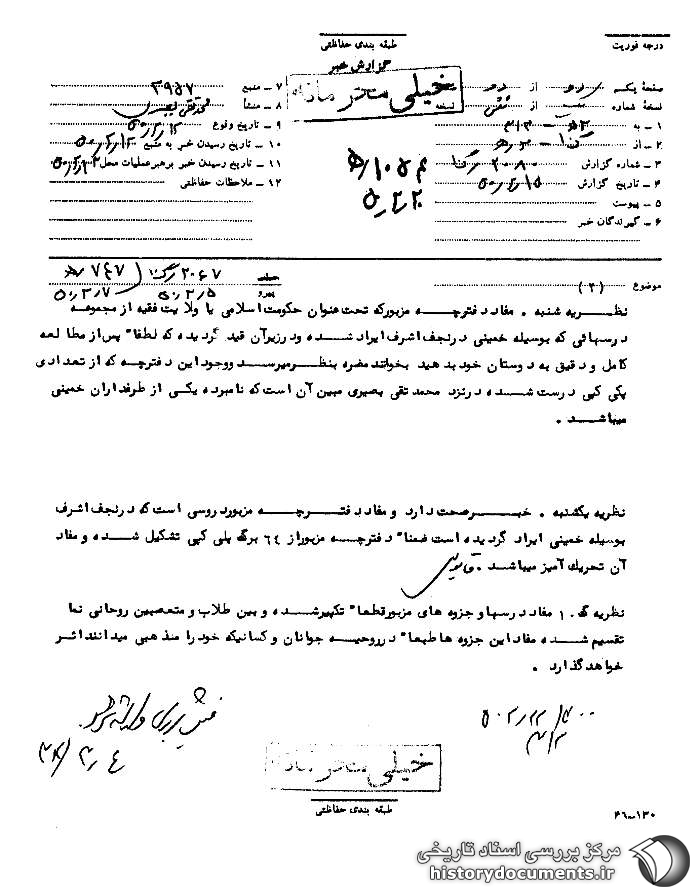 درجه فوریت
طبقه بندی حفاظتی
گزارش خبر
خیلی محرمانه
صفحه یکم از دو
نسخه شماره از نسخه
۱ – به ۳۱۳
۲ – از
۳ – شماره گزارش ۲۰۸۰
۴ – تاریخ گزارش ۵۰٫۲٫۱۵
۵ – پیوست
۶ – گیرندگان خبر
۷ – منبع ۳۹۵۷
۸ – منشأ محمد تقی بصیری
۹ – تاریخ وقوع
۱۰ – تاریخ رسیدن خبر به منبع
۱۱ – تاریخ رسیدن خبر برهبر عملیات محل
۱۲ – ملاحظات حفاظتی
موضوع (۲)
پیرو
۵۰٫۲٫۵
۵۰٫۲٫۷
نظریه شنبه . مفاد دفترچه مزبور که تحت عنوان حکومت اسلامی یا ولایت فقیه از مجموعه
درسهائی که بوسیله خمینی در نجف اشرف ایراد شده و در زیر آن قید گردیده که لطفا" پس از مطالعه
کامل و دقیق به دوستان خود بدهید بخوانند مضره بنظر میرسد و وجود این دفترچه که از تعدادی
پلی کپی درست شده در نزد محمد تقی بصیری مبین آن است که نامبرده یکی از طرفداران خمینی
میباشد .
نظریه یکشنبه . خبر صحت دارد و مفاد دفترچه مزبور دروسی است که در نجف اشرف
بوسیله خمینی ایراد گردیده است ضمنا" دفترچه مزبور از ۶۴ برگ پلی کپی تشکیل شده و مفاد
آن تحریک آمیز میباشد .
نظریه گ. ۱ مفاد درسها و جزوه های مزبور قطعا" تکثیر شده و بین طلاب و متعصبین روحانی نما
تقسیم شده مفاد این جزوه ها طبعا" در روحیه جوانان و کسانیکه خود را مذهبی میدانند اثر
خواهد گذارد .
خیلی محرمانه
طبقه بندی حفاظتی
۴۶-۱۳۰
مرکز بررسی اسناد تاریخی
historydocuments.ir